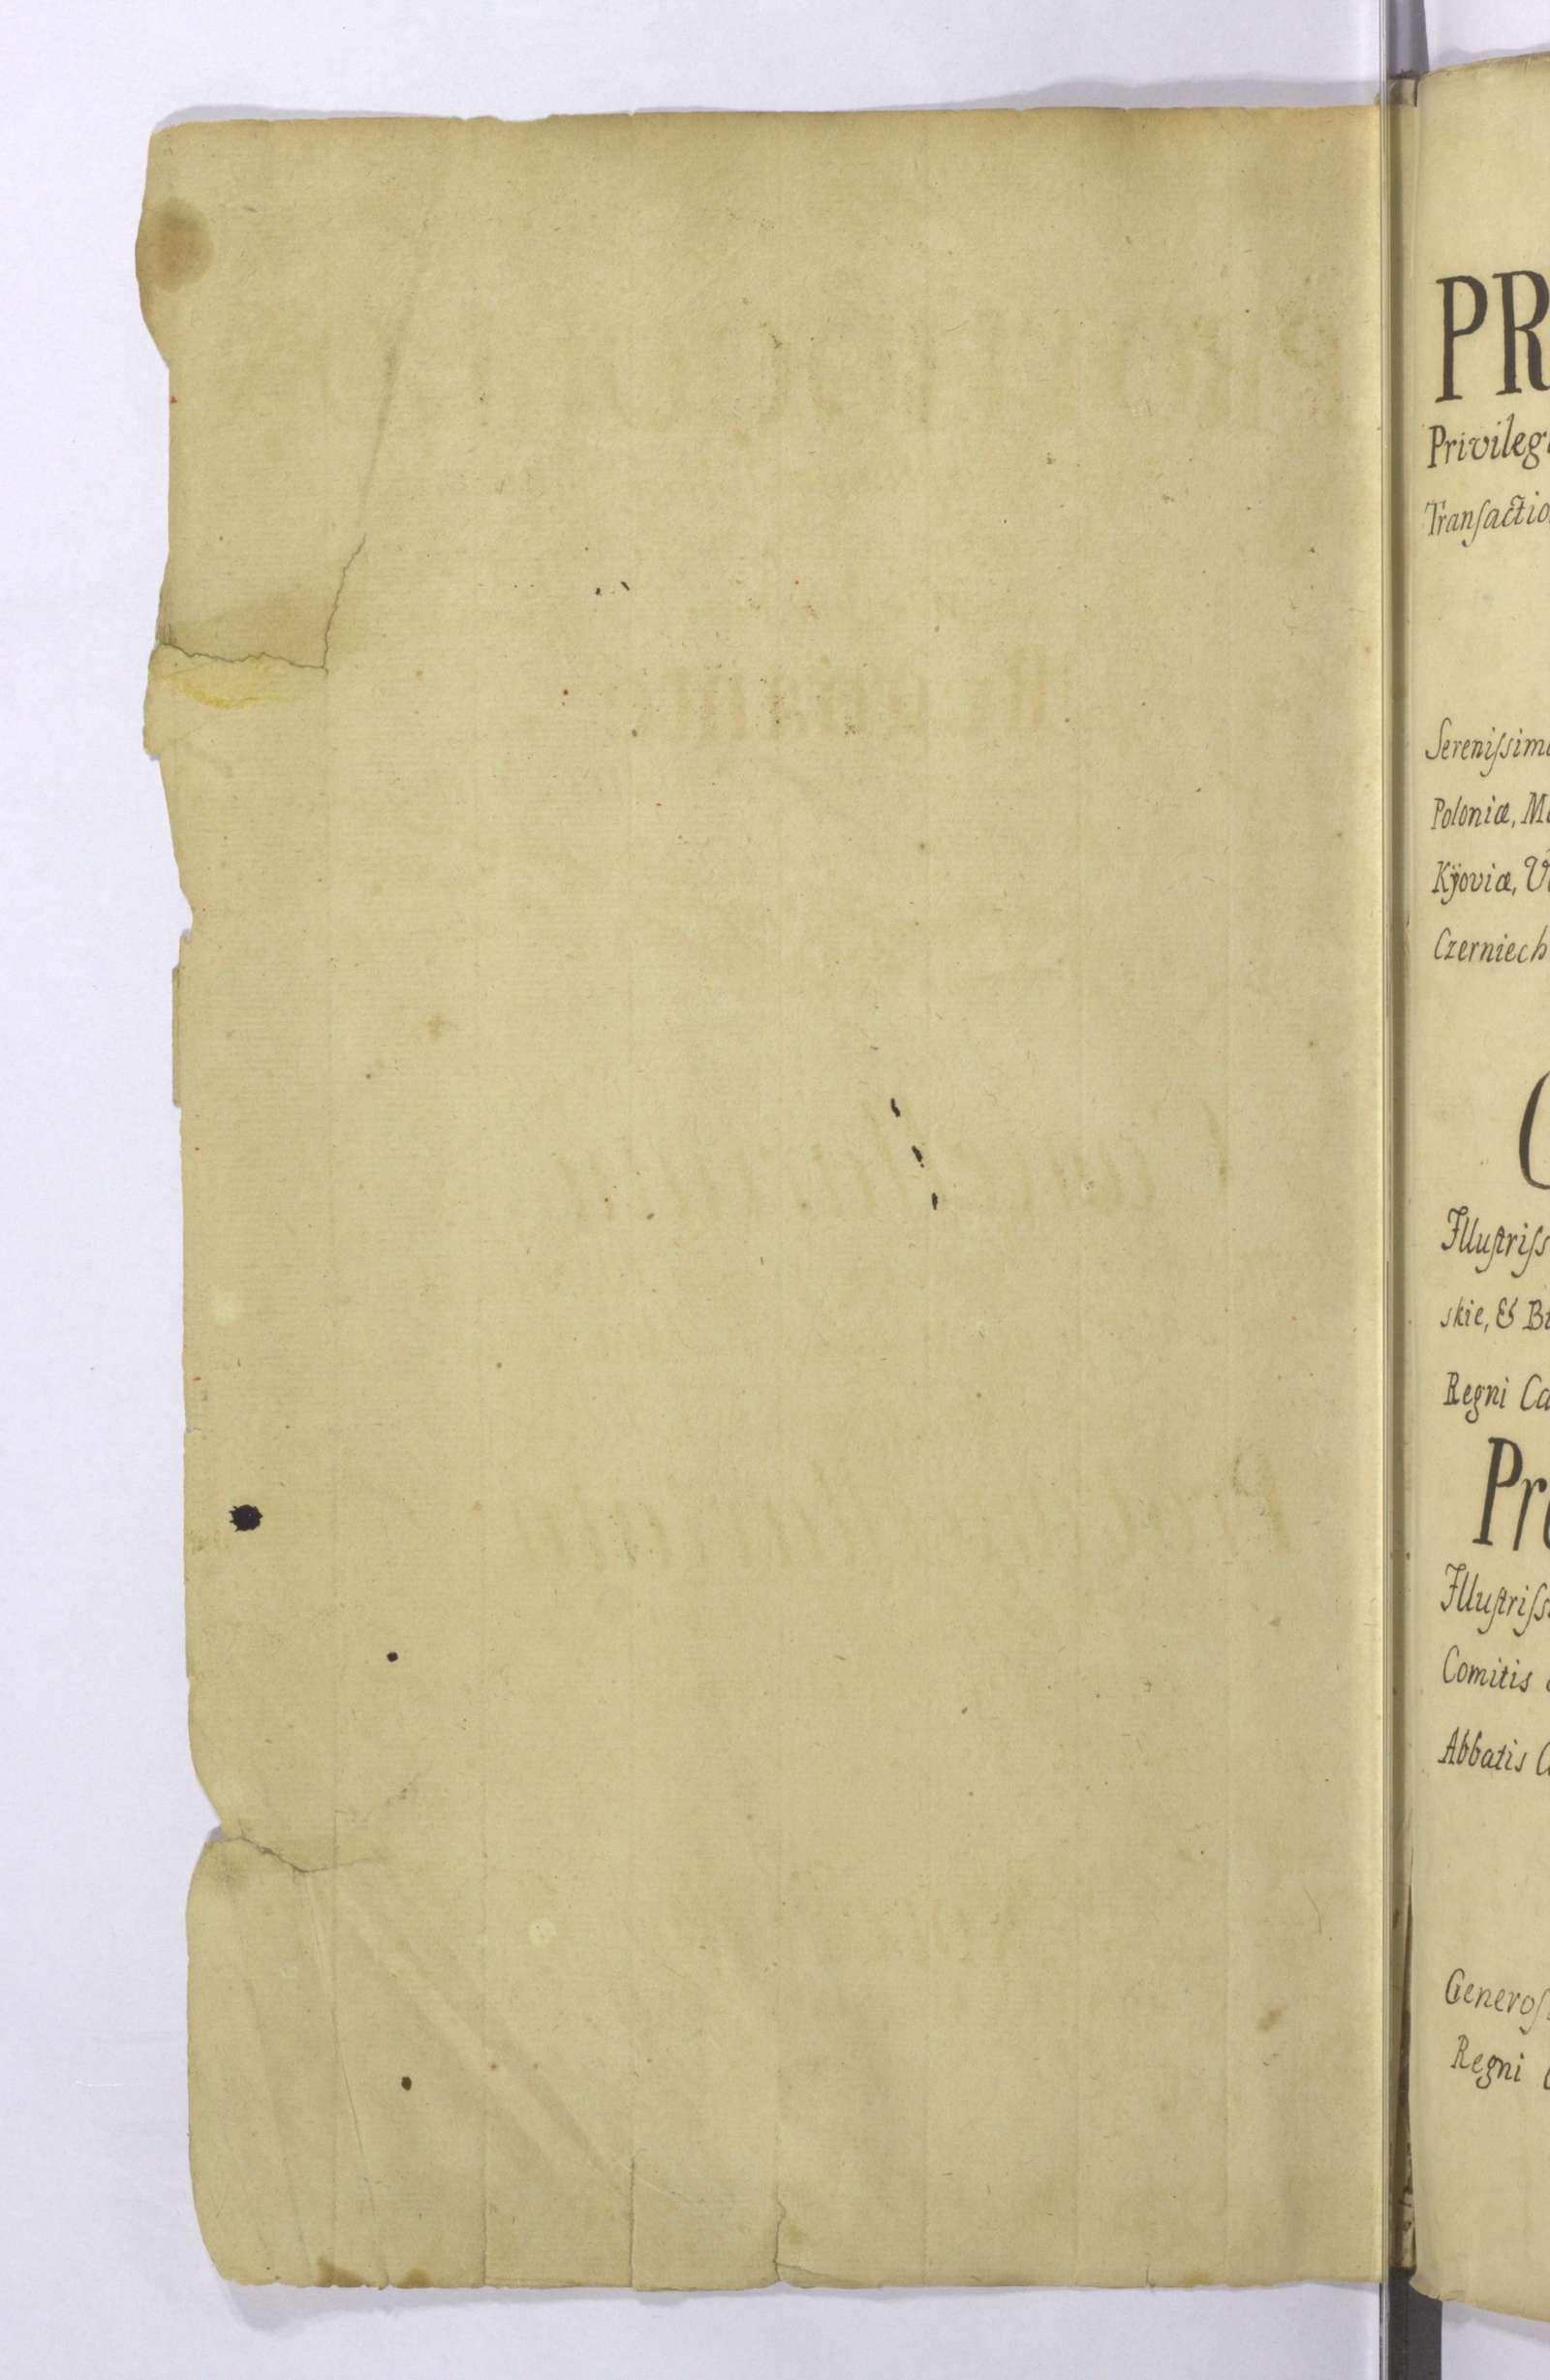 PR
Privileg
Transactio
Sereniſsim
Poloniæ, M
Kÿoviæ, V
Czerniech
C
Jlluſtriſs
skie, & B
Regni Ca
Pr
Jlluſtriſs
Comitis
Abbatis C
Generoſ
Regni